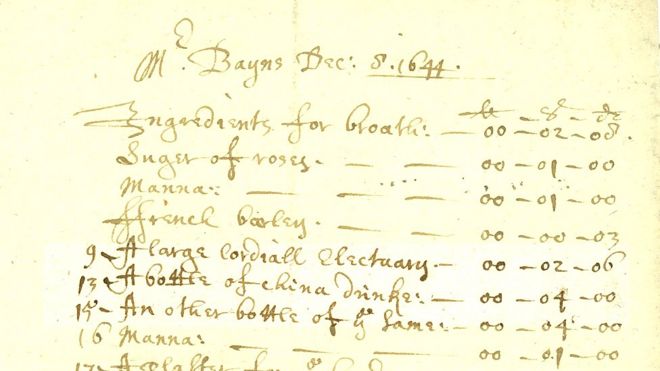 Mr. Bayns Dec: 8. 1644.
li — s — d
Ingredients for broath: — 00 — 02 — 08
Suger of roses. — — 00 — 01 — 00
Manna: — — — 00 — 01 — 00
ffrench barley. — — 00 — 00 — 03
9 - A large Cordiall Electuary. — 00 — 02 — 06
13 - A bottle of China drinke: — 00 — 04 — 00
15 - An other bottle of ye same: — 00 — 04 — 00
16 Manna: — — — 00 — 01 — 00
17 - A plaster for